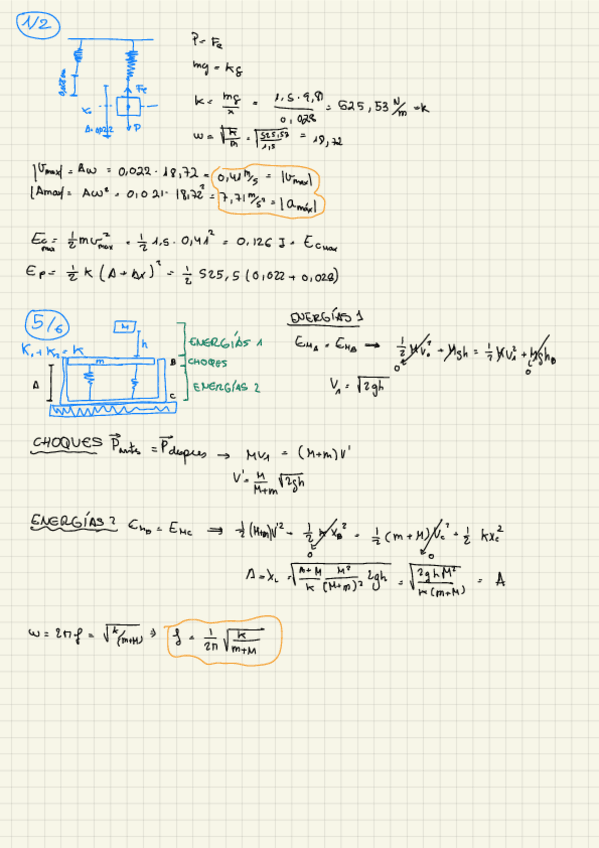 1/2
P = Fe
mg = kg
k = mg/x = 1,5 · 9,81/0,028 = 525,53 N/m = k
ω = √(k/m) = √(525,53/1,5) = 18,72
0,028m
Fe
x₀
A=0,022
P
|Vmax| = Aω = 0,022 · 18,72 = 0,41 m/s = |vmax|
|Amax| = Aω² = 0,021 · 18,72² = 7,71 m/s² = |amáx|
Ec max = ½ m v²max = ½ 1,5 · 0,41² = 0,126 J = Ecmax
Ep = ½ k (A + Δx)² = ½ 525,5 (0,022 + 0,028)
5/6
M
h
K₁ + K₂ = K
m
A
B
C
ENERGÍAS 1
CHOQUES
ENERGÍAS 2
ENERGÍAS 1
EMA = EMB → ½ M V₀² + Mgh = ½ M V₁² + Mgh₀
0
0
V₁ = √2gh
CHOQUES P⃗antes = P⃗despues → MV₁ = (M+m) V'
V' = M/(M+m) √2gh
ENERGÍAS 2 EMB = EMC ⇒ ½ (M+m) V'² + ½ k xB² = ½ (m+M) Vc² + ½ k xc²
0
0
A = xc = √((m+M)/k · M²/(M+m)² · 2gh) = √(2ghM²/(k(m+M))) = A
ω = 2πf = √(k/(m+M)) ⇒ f = 1/2π √(k/(m+M))